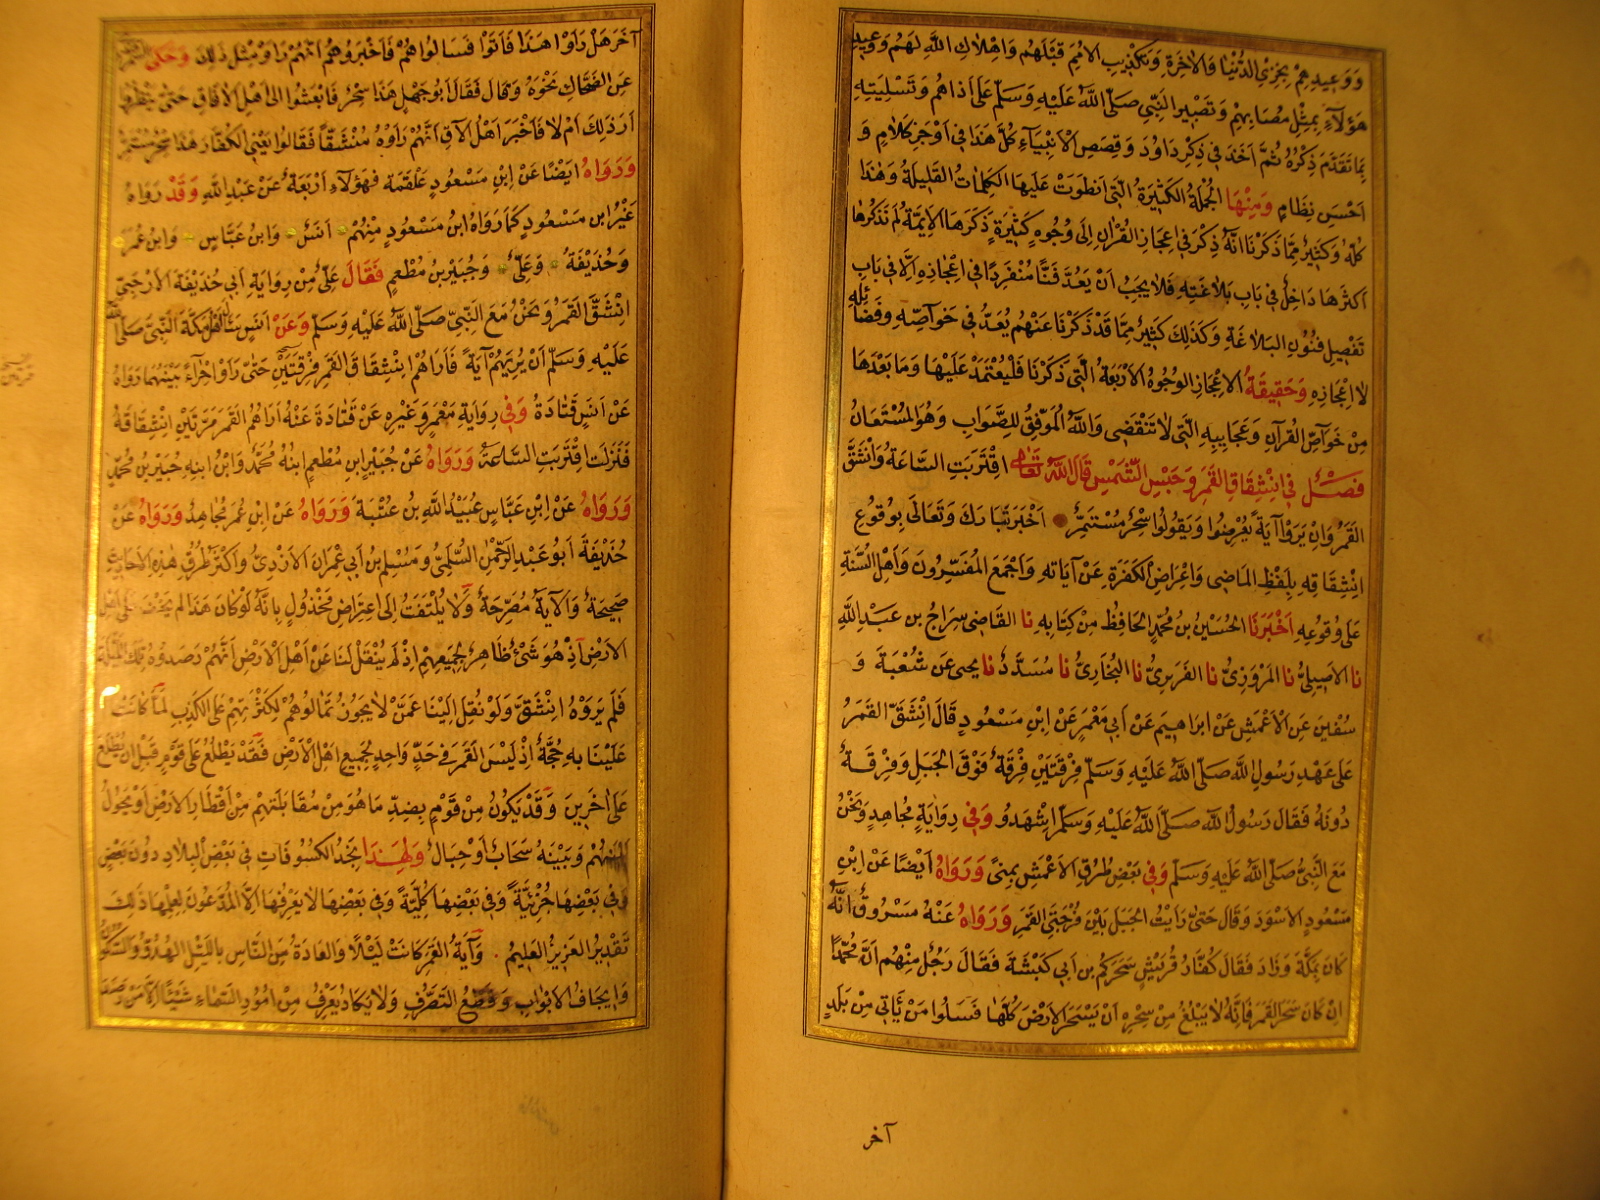 وَوَعِيدِهِمْ بِخِزْىِ الدُّنْيَا وَالْآخِرَةِ وَتَكْذِيبِ الْأُمَمِ قَبْلَهُمْ وَاِهْلَاكِ اللهِ لَهُمْ وَوَعِيدِ
هَؤُلَآءِ بِمِثْلِ مُصَابِهِمْ وَتَصْبِيرِ النَّبِيِّ صَلَّى اللهُ عَلَيْهِ وَسَلَّمَ عَلَى اَذَاهُمْ وَتَسْلِيَتِهِ
بِمَا تَقَدَّمَ ذِكْرُهُ ثُمَّ اَخَذَ فِي ذِكْرِ دَاوُدَ وَقِصَصِ الْاَنْبِيَآءِ كُلُّ هَذَا فِي اَوْجَزِ كَلَامٍ وَ
اَحْسَنِ نِظَامٍ وَمِنْهَا الْجُمْلَةُ الْكَثِيرَةُ الَّتِي انْطَوَتْ عَلَيْهَا الْكَلِمَاتُ الْقَلِيلَةُ وَهَذَا
كُلُّهُ وَكَثِيرٌ مِمَّا ذَكَرْنَا اَنَّهُ ذُكِرَ فِي اِعْجَازِ الْقُرْاٰنِ اِلَى وُجُوهٍ كَثِيرَةٍ ذَكَرَهَا الْاَيِمَّةُ لَمْ نَذْكُرْهَا
اَكْثَرُهَا دَاخِلٌ فِي بَابِ بَلَاغَتِهِ فَلَا يَجِبُ اَنْ يُعَدَّ فَنًّا مُنْفَرِدًا فِي اِعْجَازِهِ اِلَّا فِي بَابِ
تَفْصِيلِ فُنُونِ الْبَلَاغَةِ وَكَذَلِكَ كَثِيرٌ مِمَّا قَدْ ذَكَرْنَا عَنْهُمْ يُعَدُّ فِي خَوَاصِّهِ وَفَضَائِلِهِ
لَا اِعْجَازِهِ وَحَقِيقَةُ الْاِعْجَازِ الْوُجُوهُ الْاَرْبَعَةُ الَّتِي ذَكَرْنَا فَلْيُعْتَمَدْ عَلَيْهَا وَمَا بَعْدَهَا
مِنْ خَوَاصِّ الْقُرْآنِ وَعَجَايِبِهِ الَّتِي لَا تَنْقَضِي وَاللهُ الْمُوَفِّقُ لِلصَّوَابِ وَهُوَ الْمُسْتَعَانُ
فَصْلٌ فِي انْشِقَاقِ الْقَمَرِ وَحَبْسِ الشَّمْسِ قَالَ اللهُ تَعَالَى اقْتَرَبَتِ السَّاعَةُ وَانْشَقَّ
الْقَمَرُ وَاِنْ يَرَوْا آيَةً يُعْرِضُوا وَيَقُولُوا سِحْرٌ مُسْتَمِرٌّ اَخْبَرَ تَبَارَكَ وَتَعَالَى بِوُقُوعِ
انْشِقَاقِهِ بِلَفْظِ الْمَاضِي وَاِعْرَاضِ الْكَفَرَةِ عَنْ آيَاتِهِ وَاَجْمَعَ الْمُفَسِّرُونَ وَاَهْلُ السُّنَّةِ
عَلَى وُقُوعِهِ اَخْبَرَنَا الْحُسَيْنُ بن مُحَمَّدٍ الْحَافِظُ مِنْ كِتَابِهِ نا القَاضِي سِرَاجُ بن عَبْدِ اللهِ
نا الاَصِيلِيُّ نا الْمَرْوَزِيُّ نا الْفَرَبْرِيُّ نا الْبُخَارِيُّ نا مُسَدَّدٌ نا يحيى عَنْ شُعْبَةَ وَ
سُفْيَنَ عَنِ الْاَعْمَشِ عَنْ اِبْرَاهِيمَ عَنْ اَبِي مَعْمَرٍ عَنْ اِبْنِ مَسْعُودٍ قَالَ انْشَقَّ الْقَمَرُ
عَلَى عَهْدِ رَسُولِ اللهِ صَلَّى اللهُ عَلَيْهِ وَسَلَّمَ فِرْقَتَيْنِ فِرْقَةً فَوْقَ الْجَبَلِ وَفِرْقَةً
دُونَهُ فَقَالَ رَسُولُ اللهِ صَلَّى اللهُ عَلَيْهِ وَسَلَّمَ اشْهَدُو وَفِي رِوَايَةِ مُجَاهِدٍ وَنَحْنُ
مَعَ النَّبِيِّ صَلَّى اللهُ عَلَيْهِ وَسَلَّمَ وَفِي بَعْضِ طُرُقِ الْاَعْمَشِ بِمِنًى وَرَوَاهُ اَيْضًا عَنْ ابْنِ
مَسْعُودٍ الْاَسْوَدُ وَقَالَ حَتَّى رَايْتُ الْجَبَلَ بَيْنَ فُرْجَتَيِ الْقَمَرِ وَرَوَاهُ عَنْهُ مَسْرُوقٌ اَنَّهُ
كَانَ بِمَكَّةَ وَزَادَ فَقَالَ كُفَّارُ قُرَيْشٍ سَحَرَكُمْ بن اَبِي كَبْشَةَ فَقَالَ رَجُلٌ مِنْهُمْ اَنَّ مُحَمَّدًا
اِنْ كَانَ سَحَرَ الْقَمَرَ فَاِنَّهُ لَا يَبْلُغُ مِنْ سِحْرِهِ اَنْ يَسْحَرَ الْاَرْضَ كُلَّهَا فَسَلُوا مَنْ يَأتِي مِنْ بَلَدٍ
آخر
آخَرَ هَلْ رَاَوْا هَذَا فَاَتَوْا فَسَالُوا هُمْ فَاَخْبَرُوهُمْ اَنَّهُمْ رَاَوْ مِثْلَ ذَلِكَ وَحَكَى
عَنِ الضَّحَّاكِ نَحْوَهُ وَقَالَ فَقَالَ اَبُو جَهْلٍ هَذَا سِحْرٌ فَابْعَثُوا اِلَى اَهْلِ الْآفَاقِ حَتَّى
اَرَ ذَلِكَ اَمْ لَا فَاَخْبَرَ اَهْلُ الْآقِ اَنَّهُمْ رَاَوْهُ مُنْشَقًّا فَقَالُوا يَعْنِي الْكُفَّارَ هَذَا سِحْرٌ مُسْتَمِرٌّ
وَرَوَاهُ اَيْضًا عَنْ اِبْنِ مَسْعُودٍ عَلْقَمَة فَهَؤُلَآءِ اَرْبَعَةٌ عَنْ عَبْدِ اللهِ وَقَدْ رَوَاهُ
غَيْرُ ابن مَسْعُودٍ كَمَا رَوَاهُ ابْنُ مَسْعُودٍ مِنْهُمْ اَنَسٌ وَابْنُ عَبَّاسٍ وَابْنُ عُمَرَ
وَحُذَيْفَةُ وَعَلِيٌّ وَجُبَيْرُ بْنُ مُطْعِمٍ فَقَالَ عَلِيٌّ مِنْ رِوَايَةِ اَبِي حُذَيْفَةَ الْاَرْحَبِيّ
انْشَقَّ الْقَمَرُ وَنَحْنُ مَعَ النَّبِيِّ صَلَّى اللهُ عَلَيْهِ وَسَلَّمَ وَعَنْ اَنَسٍ سَاَلَ اَهْلُ مَكَّةَ النَّبِيَّ صَلَّى اللهُ
عَلَيْهِ وَسَلَّمَ اَنْ يُرِيَهُمْ آيَةً فَاَرَاهُمُ انْشِقَاقَ الْقَمَرِ فِرْقَتَيْنِ حَتَّى رَاَوْا حِرَآءً بَيْنَهُمَا رَوَاهُ
عَنْ اَنَسٍ قَتَادَةُ وَفِي رِوَايَةِ مَعْمَرٍ وَغَيْرِهِ عَنْ قَتَادَةَ عَنْهُ اَرَاهُمُ الْقَمَرَ مَرَّتَيْنِ انْشِقَاقَهُ
فَنَزَلَتْ اقْتَرَبَتِ السَّاعَةُ وَرَوَاهُ عَنْ جُبَيْرِ ابنِ مُطْعِمٍ ابْنُهُ مُحَمَّدٌ وَابْنُ ابنِهِ جُبَيْرُ بْنُ مُحَمَّدٍ
وَرَوَاهُ عَنْ اِبْنِ عَبَّاسٍ عُبَيْدُ اللهِ بن عُتْبَةَ وَرَوَاهُ عَنِ ابنِ عُمَرَ مُجَاهِدٌ وَرَوَاهُ عَنْ
حُذَيْفَةَ اَبُو عَبْدِ الرَّحْمٰنِ السُّلَمِيُّ وَمُسْلِمُ بن اَبِي عِمْرَانَ الْاَزْدِيُّ وَاَكْثَرُ طُرُقِ هَذِهِ الْاَحَادِيثِ
صَحِيحَةٌ وَالْآيَةُ مُصَرِّحَةٌ وَلَا يُلْتَفَتُ اِلَى اعْتِرَاضِ مَخْذُولٍ بِاَنَّهُ لَوْ كَانَ هَذَا لَمْ يَخْفَ عَلَى اَهْلِ
الْاَرْضِ اِذْ هُوَ شَيْءٌ ظَاهِرٌ لِجَمِيعِهِمْ اِذْ لَمْ يُنْقَلْ لَنَا عَنْ اَهْلِ الْاَرْضِ اَنَّهُمْ رَصَدُوهُ تِلْكَ اللَّيْلَةَ
فَلَمْ يَرَوْهُ اِنْشَقَّ وَلَوْ نُقِلَ اِلَيْنَا عَمَّنْ لَا يَجُوزُ تَمَالُوهُمْ لِكَثْرَتِهِمْ عَلَى الْكَذِبِ لَمَا كَانَتْ
عَلَيْنَا بِهِ حُجَّةٌ اِذْ لَيْسَ الْقَمَرُ فِي حَدٍّ وَاحِدٍ لِجَمِيعِ اَهْلِ الْاَرْضِ فَقَدْ يَطْلُعُ عَلَى قَوْمٍ قَبْلَ ان يَطْلُعَ
عَلَى آخَرِينَ وَقَدْ يَكُونُ مِنْ قَوْمٍ بِضِدِّ مَا هُوَ مِنْ مُقَابَلَتِهِمْ مِنْ اَقْطَارِ الْاَرْضِ اَوْ يَحُولُ
بَيْنَهُمْ وَبَيْنَهُ سَحَابٌ اَوْ جِبَالٌ وَلِهَذَا نَجِدُ الْكُسُوفَاتِ فِي بَعْضِ الْبِلَادِ دُونَ بَعْضٍ
وَفِي بَعْضِهَا جُزْئِيَّةً وَفِي بَعْضِهَا كُلِّيَّةً وَفِي بَعْضِهَا لَا يَعْرِفُهَا اِلَّا الْمُدَّعُونَ لِعِلْمِهَا ذَلِكَ
تَقْدِيرُ الْعَزِيزِ الْعَلِيمِ وَآيَةُ الْقَمَرِ كَانَتْ لَيْلًا وَالْعَادَةُ مِنَ النَّاسِ بِاللَّيْلِ الْهُدُوُّ وَالسُّكُونُ
وَاِيجَافُ الْاَبْوَابِ وَقَطْعُ التَّصَرُّفِ وَلَا يَكَادُ يَعْرِفُ مِنْ اُمُورِ السَّمَاءِ شَيْئًا اِلَّا مَنْ رَصَدَ